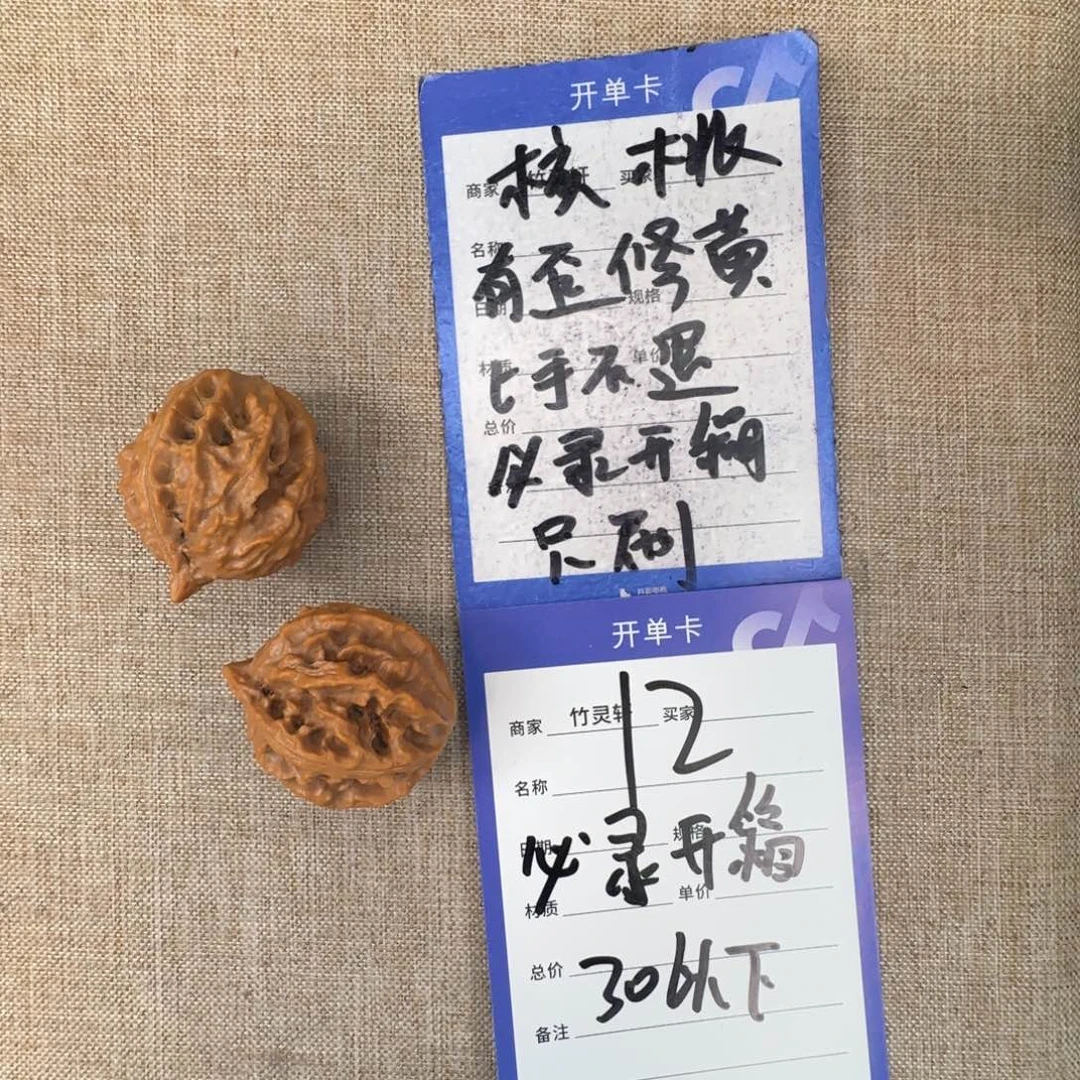 开单卡
核桃
商家 买家
名称
有歪修黄
日期 规格
上手不退
材质 单价
总价
必录开箱
只刷
开单卡
12
商家 竹灵轩 买家
名称
必录开箱
日期 规格
材质 单价
总价 30以下
备注